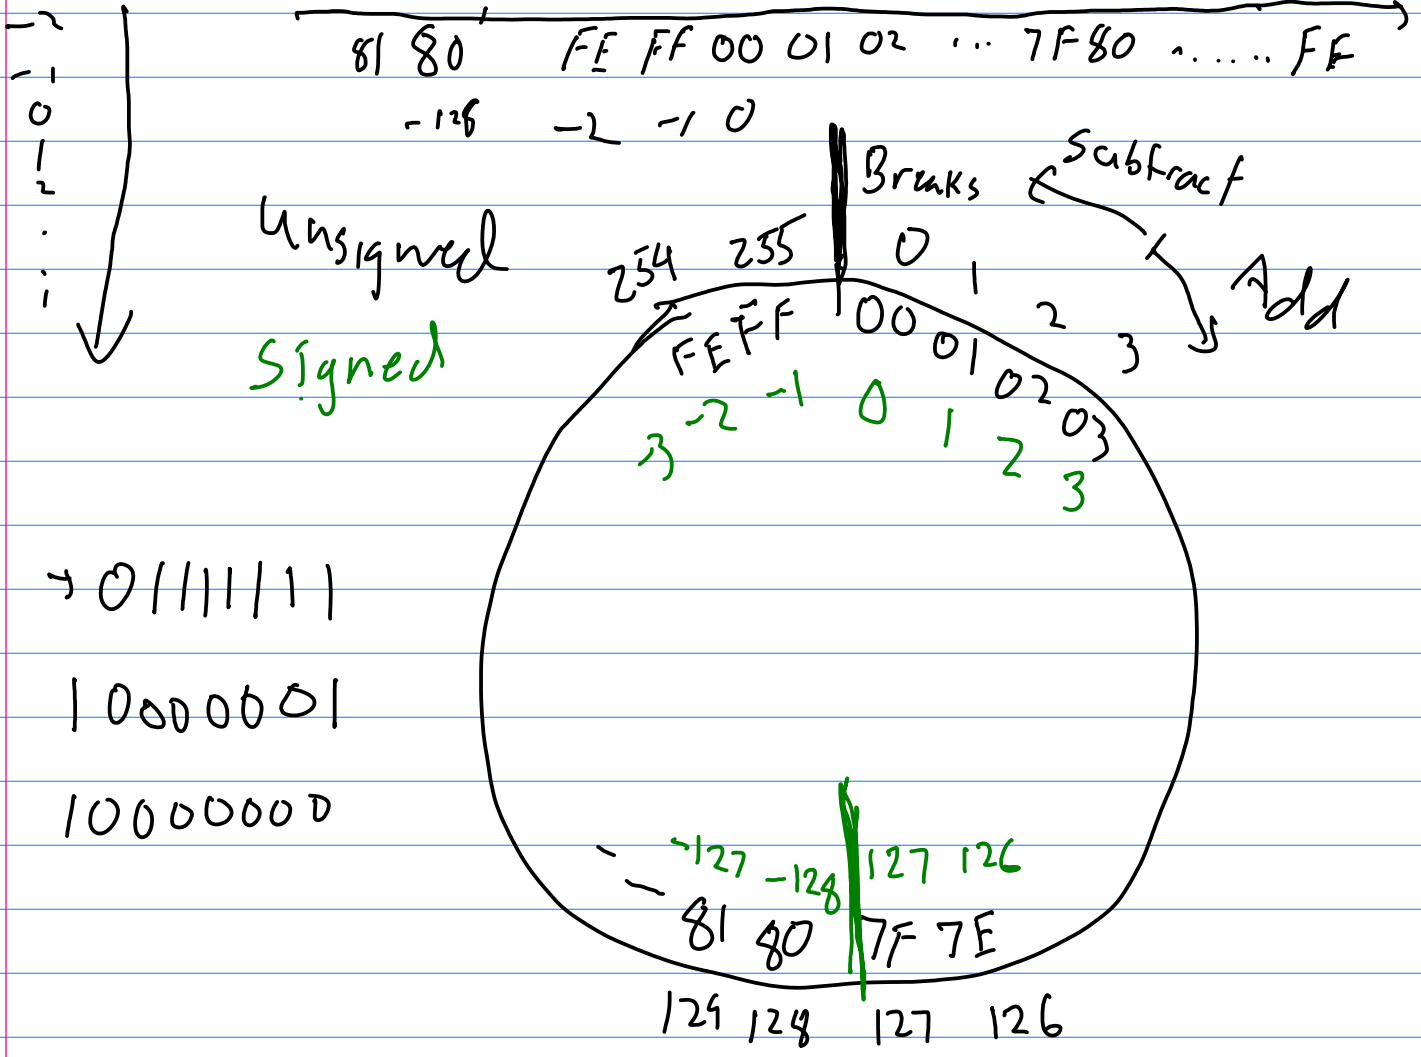 -2
-1
0
1
2
.
:
81 80 FE FF 00 01 02 ... 7F 80 ...... FE
-128 -2 -1 0
Breaks
Subtract
Add
Unsigned
254 255 0 1 2 3
FE FF 00 01 02 03
Signed
3 -2 -1 0 1 2 3
01111111
10000001
10000000
-127 -128 127 126
81 80 7F 7E
129 128 127 126